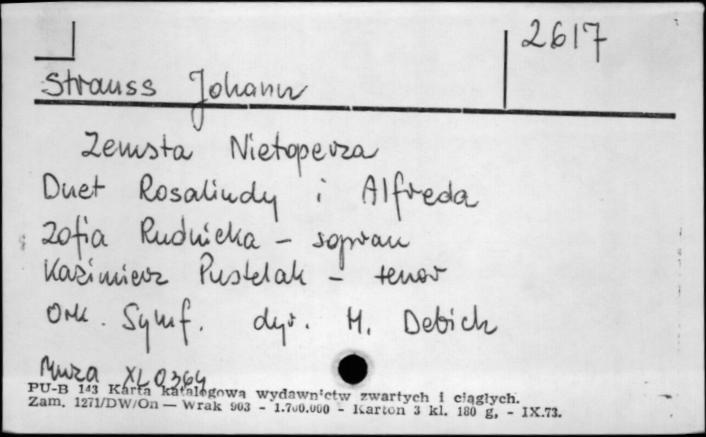 2617
Strauss Johann
Zemsta Nietoperza
Duet Rosalindy i Alfreda
Zofia Rudnicka - sopran
Kazimierz Pustelak - tenor
Ork. Symf. dyr. H. Debich
Muza XL 0364
PU-B 143 Karta katalogowa wydawnictw zwartych i ciągłych.
Zam. 1271/DW/On — Wrak 903 - 1.700.000 - Karton 3 kl. 180 g, - IX.73.